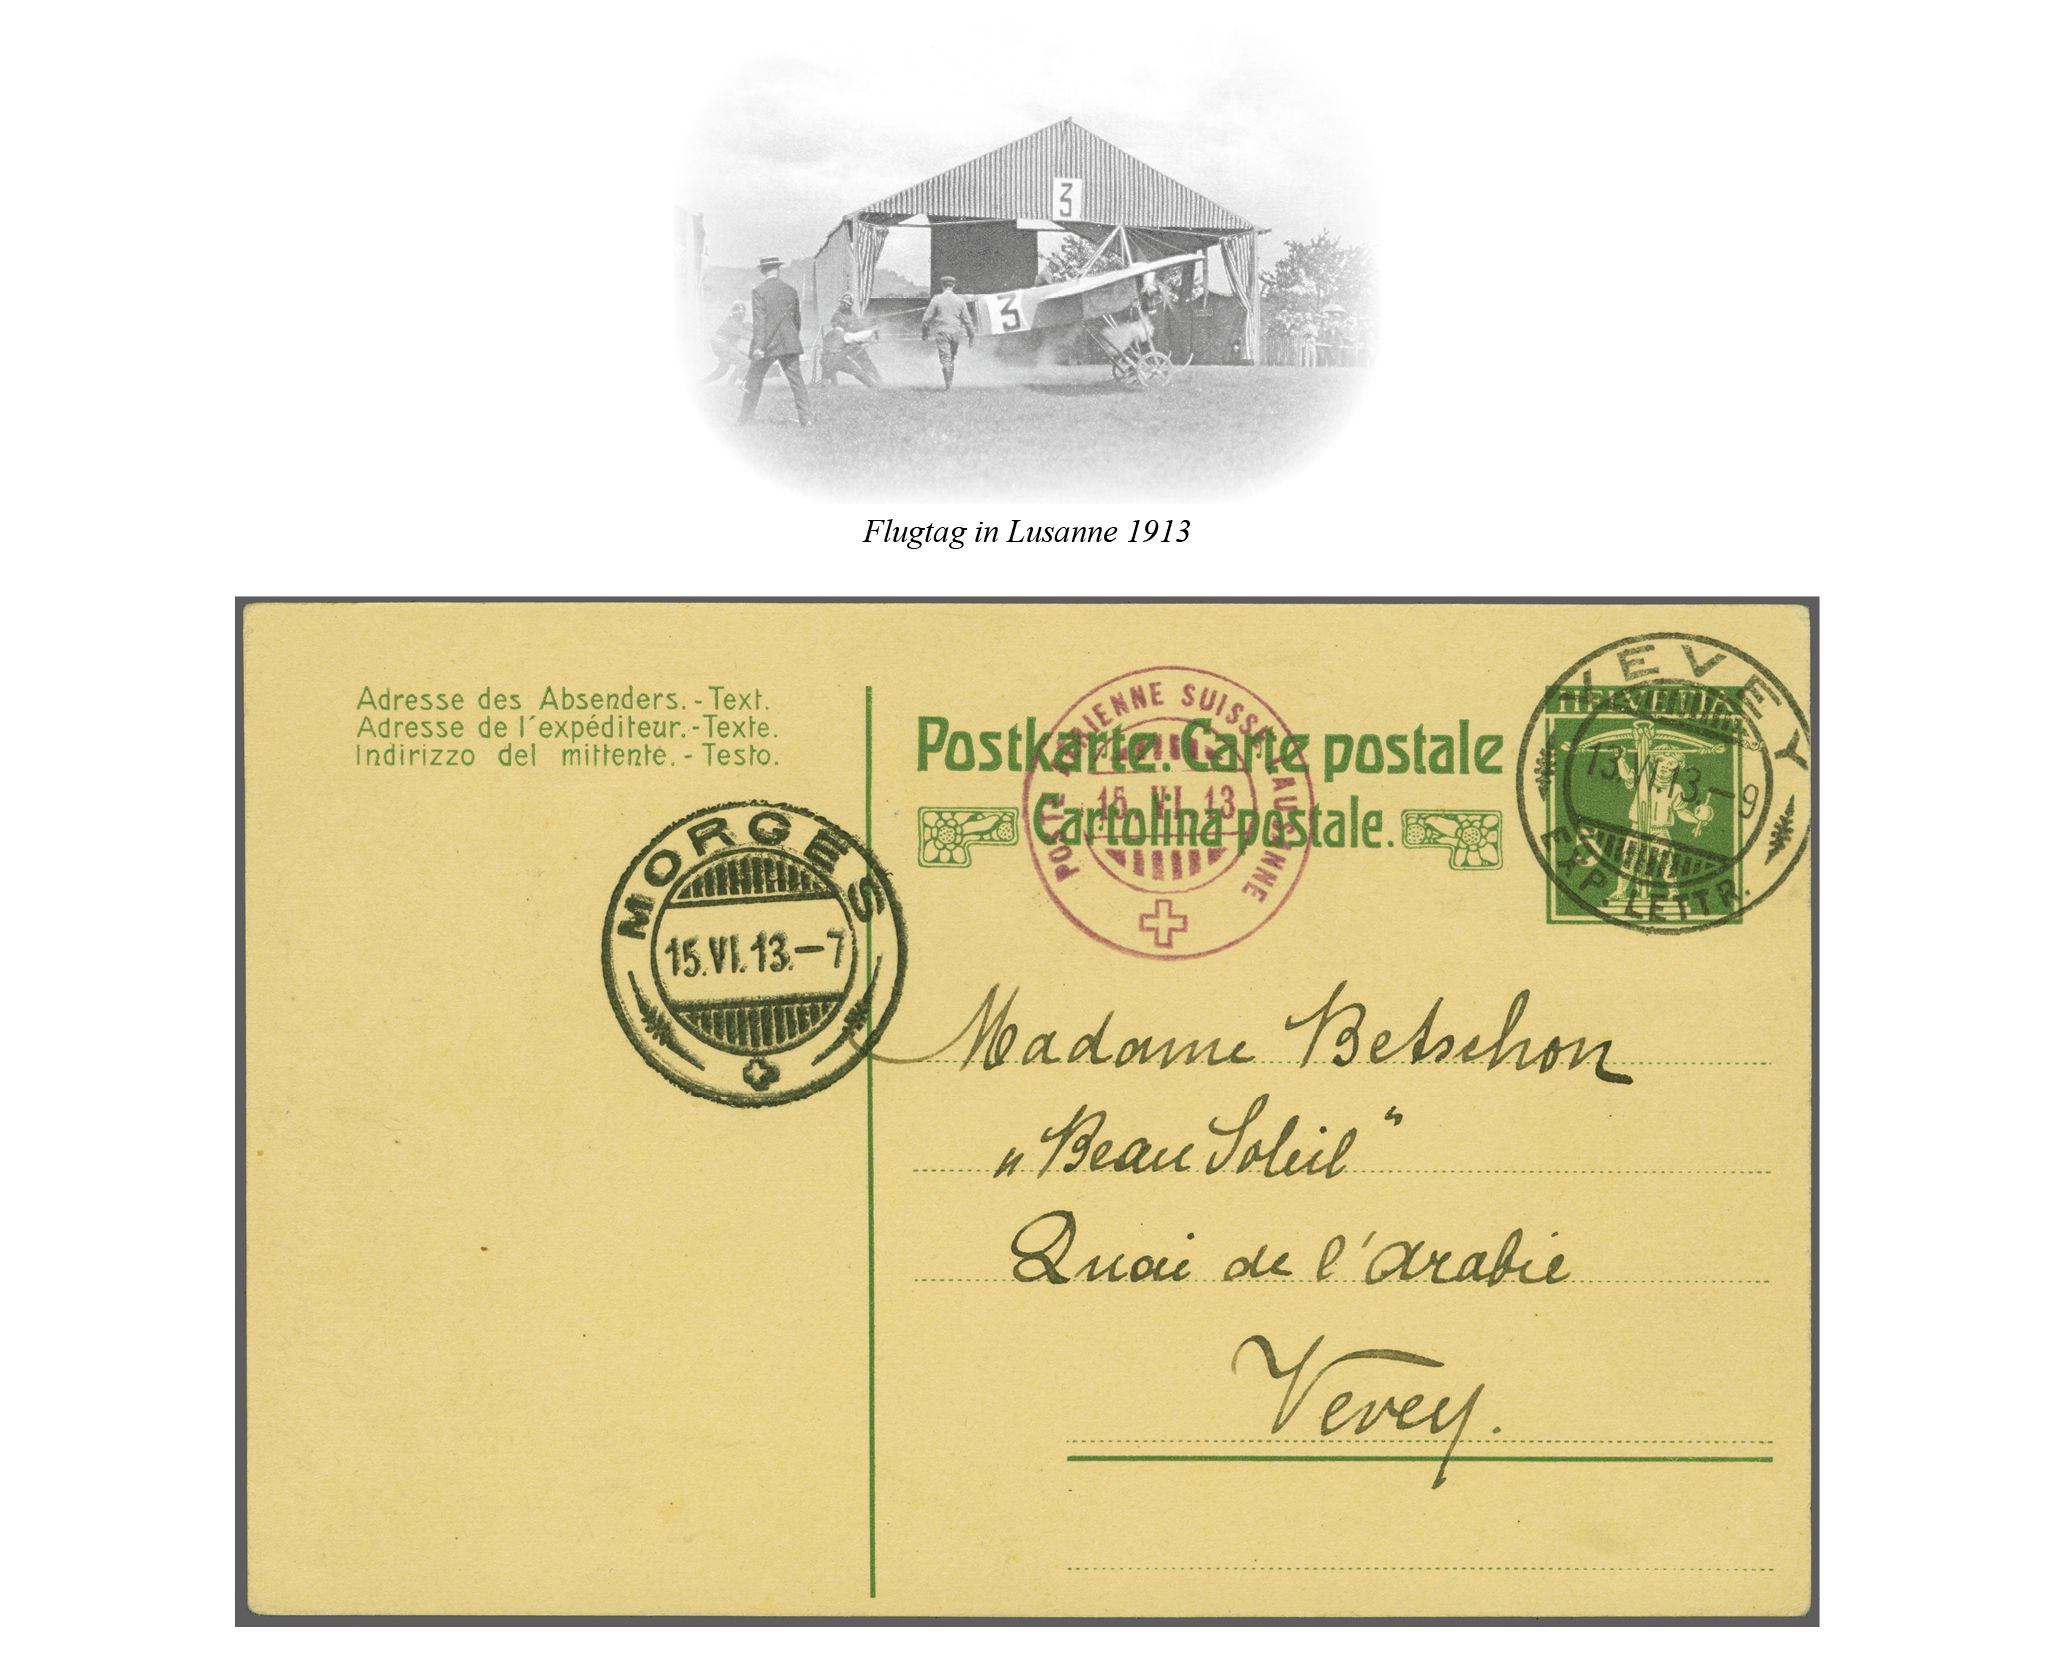 3
3
Flugtag in Lusanne 1913
Adresse des Absenders.-Text.
Adresse de l'expéditeur.-Texte.
Indirizzo del mittente.-Testo.
Postkarte. Carte postale
Cartolina postale.
POSTE AÉRIENNE SUISSE LAUSANNE
15. VI. 13
HELVETIA
VEVEY
13.VI.13.–9
EXP. LETTR.
MORGES
15.VI.13.–7
Madame Betschon
„Beau Soleil“
Quai de l'Arabie
Vevey.